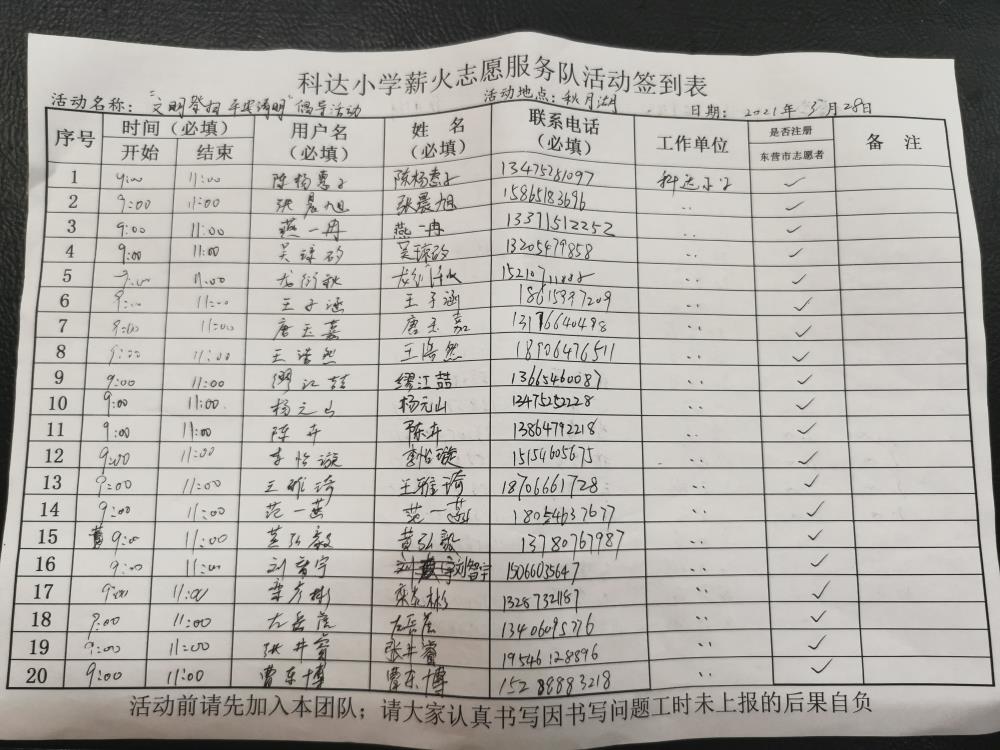 科达小学薪火志愿服务队活动签到表
活动名称：“文明祭扫 平安清明”倡导活动 活动地点：秋月湖 日期：2021年 3月28日
序号 时间（必填） 用户名（必填） 姓 名（必填） 联系电话（必填） 工作单位 是否注册 备 注
开始 结束 东营市志愿者
1 9:00 11:00 陈杨惠子 陈杨惠子 13475281097 科达小学 ✓
2 9:00 11:00 张晨旭 张晨旭 15865183696 〃 ✓
3 9:00 11:00 燕一冉 燕一冉 13371512252 〃 ✓
4 9:00 11:00 13205479858 〃 ✓
5 9:00 11:00 〃 ✓
6 9:00 11:00 王子涵 王子涵 〃 ✓
7 9:00 11:00 唐玉嘉 唐玉嘉 13176640498 〃 ✓
8 9:00 11:00 王浩然 王浩然 18906476511 〃 ✓
9 9:00 11:00 缪江喆 缪江喆 13665460087 〃 ✓
10 9:00 11:00 杨元山 杨元山 13475252228 〃 ✓
11 9:00 11:00 陈卉 陈卉 13864792218 〃 ✓
12 9:00 11:00 李怡璇 李怡璇 15154605675 〃 ✓
13 9:00 11:00 王雅琦 王雅琦 18706661728 〃 ✓
14 9:00 11:00 范一燕 范一燕 18054637677 〃 ✓
15 9:00 11:00 黄弘毅 黄弘毅 13780767987 〃 ✓
16 9:00 11:00 刘智宇 刘智宇 15066035647 〃 ✓
17 9:00 11:00 栾彦彬 栾彦彬 13287321187 〃 ✓
18 9:00 11:00 13406095776 〃 ✓
19 9:00 11:00 张井睿 张井睿 19546128896 〃 ✓
20 9:00 11:00 曹东博 曹东博 15288883218 〃 ✓
活动前请先加入本团队；请大家认真书写因书写问题工时未上报的后果自负